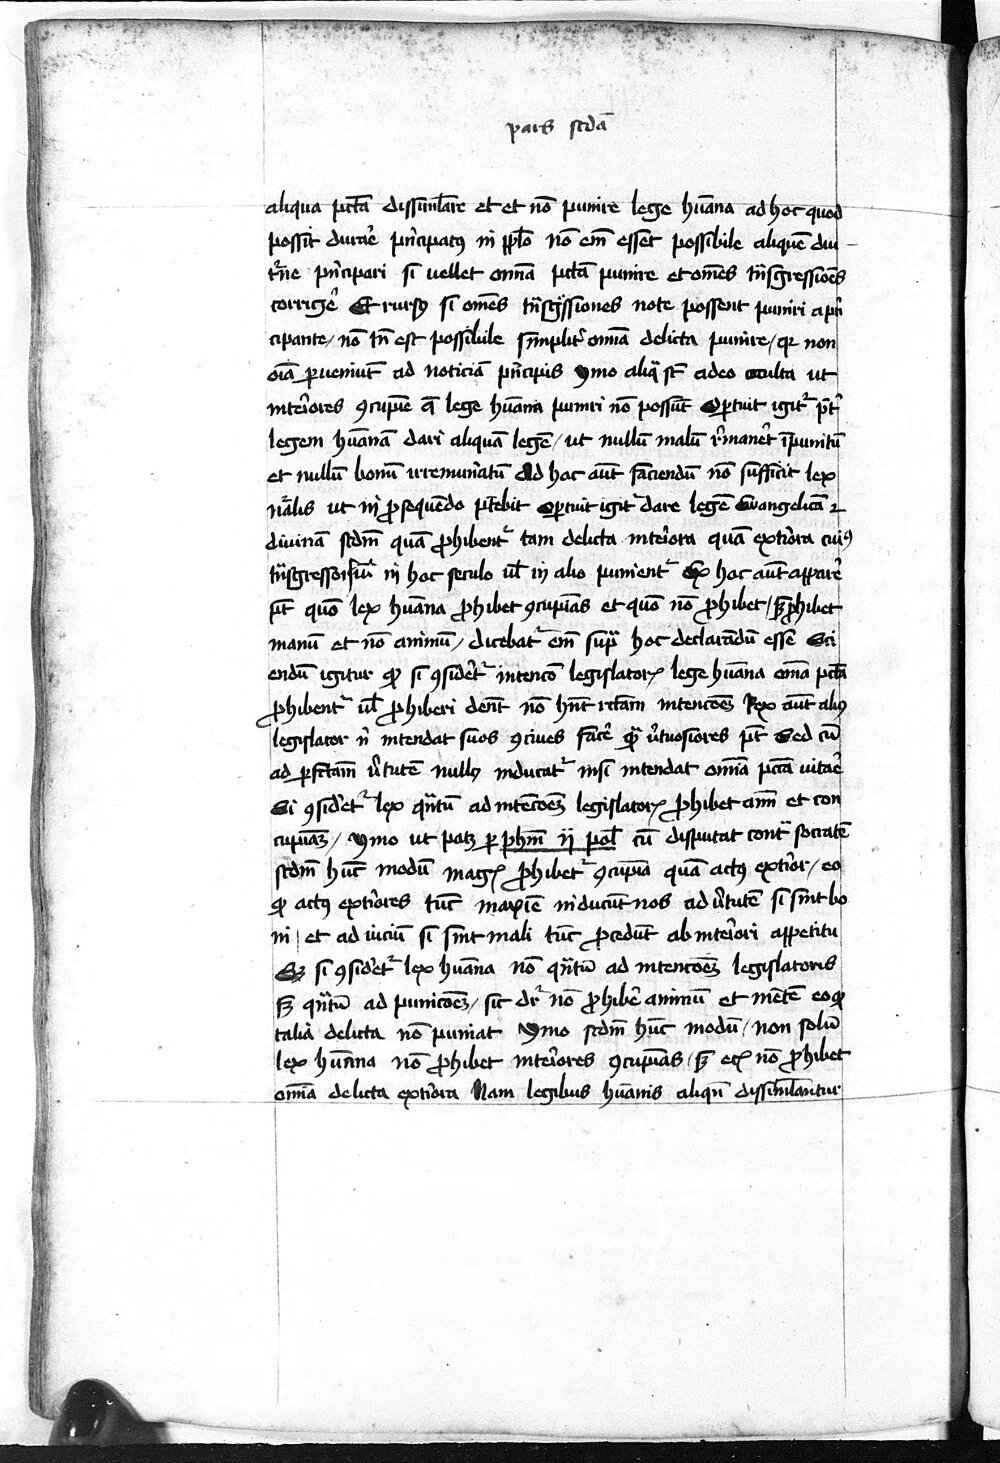 pars scdā
aliqua pctā dissimlare et et nō punire lege hūana ad hoc quod
possit durar̄e pncipatꝰ in pplō nō em̄ esset possibile aliquē diu
tne pncipari si vellet omnia pctā punire et omēs tnsgressiōes
corriger̄e Et rursꝰ si omēs tnsgssiones note possent puniri a pn
cipante / nō tn̄ est possibile simplitr omia delicta punire / qr non
oīa ꝑveniūt ad noticiā pncipis ymo aliq̄ st̄ adeo occulta ut
interiores ꝯcupiē a lege hūana puniri nō possūt Oportuit igitr p̄tr
legem hūanā dari aliquam legē / ut nullū malū rmaneret īpunitū
et nullū bonū irremunatū Ad hoc aūt faciendū nō sufficit lex
nālis ut in ꝓsequēdo ptēbit Oportuit igitr dare legē Evangelicā ⁊
divinā scdm quā ꝓhibentr tam delicta interiora quā extiora cuiꝰ
tnsgressor in hoc seculo vl̄ in alio punientr Ex hoc aūt apparē
pt̄ quō lex hūana ꝓhibet ꝯcupiās et quō nō ꝓhibet / sꝫ ꝓhibet
manū et nō animū / dicebatr em̄ supra hoc declarādū essē Sci
endū igitur ꝙ si ꝯsidetr intencō legislatorꝭ lege hūana omīa pctā
ꝓhibentr vl̄ ꝓhiberi dent̄ nō hn̄t rctam intencōeꝫ Rex aūt aliꝰ
legislator n̄ intendat suos ꝯcives facē ꝙ vtuosiores pt̄ Sed cū
ad ꝑfctam vtutē nullꝰ inducatr nisi intendat omīa pctā vitar̄e
Si ꝯsidetr lex qntū ad intēcōeꝫ legislatorꝭ ꝓhibet aīm et con
cupiāꝫ / ymo ut patꝫ ꝑ phm ij pol̄ cū disputat contra socratē
scdm hūc modū magꝭ ꝓhibetr ꝯcupīa quā actꝰ extior / eo
ꝙ actꝰ extiores tūc maxīe inducūt nos ad vtutē si sint bo
ni / et ad viciū si sint mali tūc ꝓcedūt ab interiori appetitu
Sꝫ si ꝯsidetr lex hūana nō qntū ad intencōeꝫ legislatoris
sꝫ qntū ad punicōeꝫ / sic dr nō ꝓhibē animū et mētē eo ꝙ
talia delicta nō puniat ymo scdm hūc modū / non solū
lex hūana nō ꝓhibet interiores ꝯcupiās / sꝫ ecꝭ nō ꝓhibet
omīa delicta extiora Nam legibus hūanis aliqn̄ dissimlantur